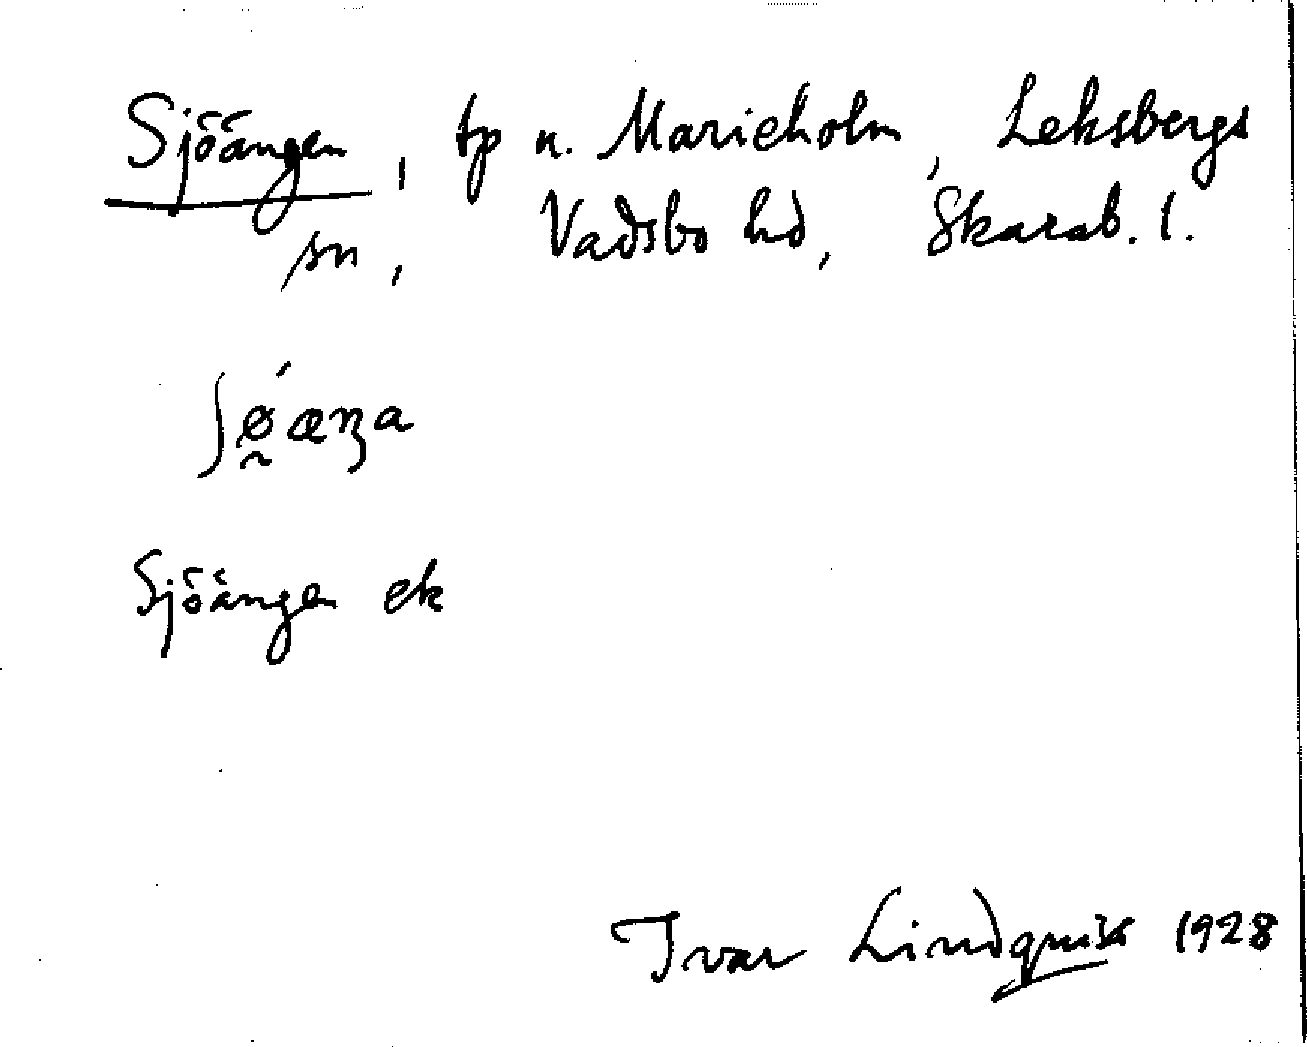 Sjöängen, tp u. Marieholm, Leksbergs
sn, Vadsbo hd, Skarab. l.
Sjöängen ek
Ivar Lindquist 1928